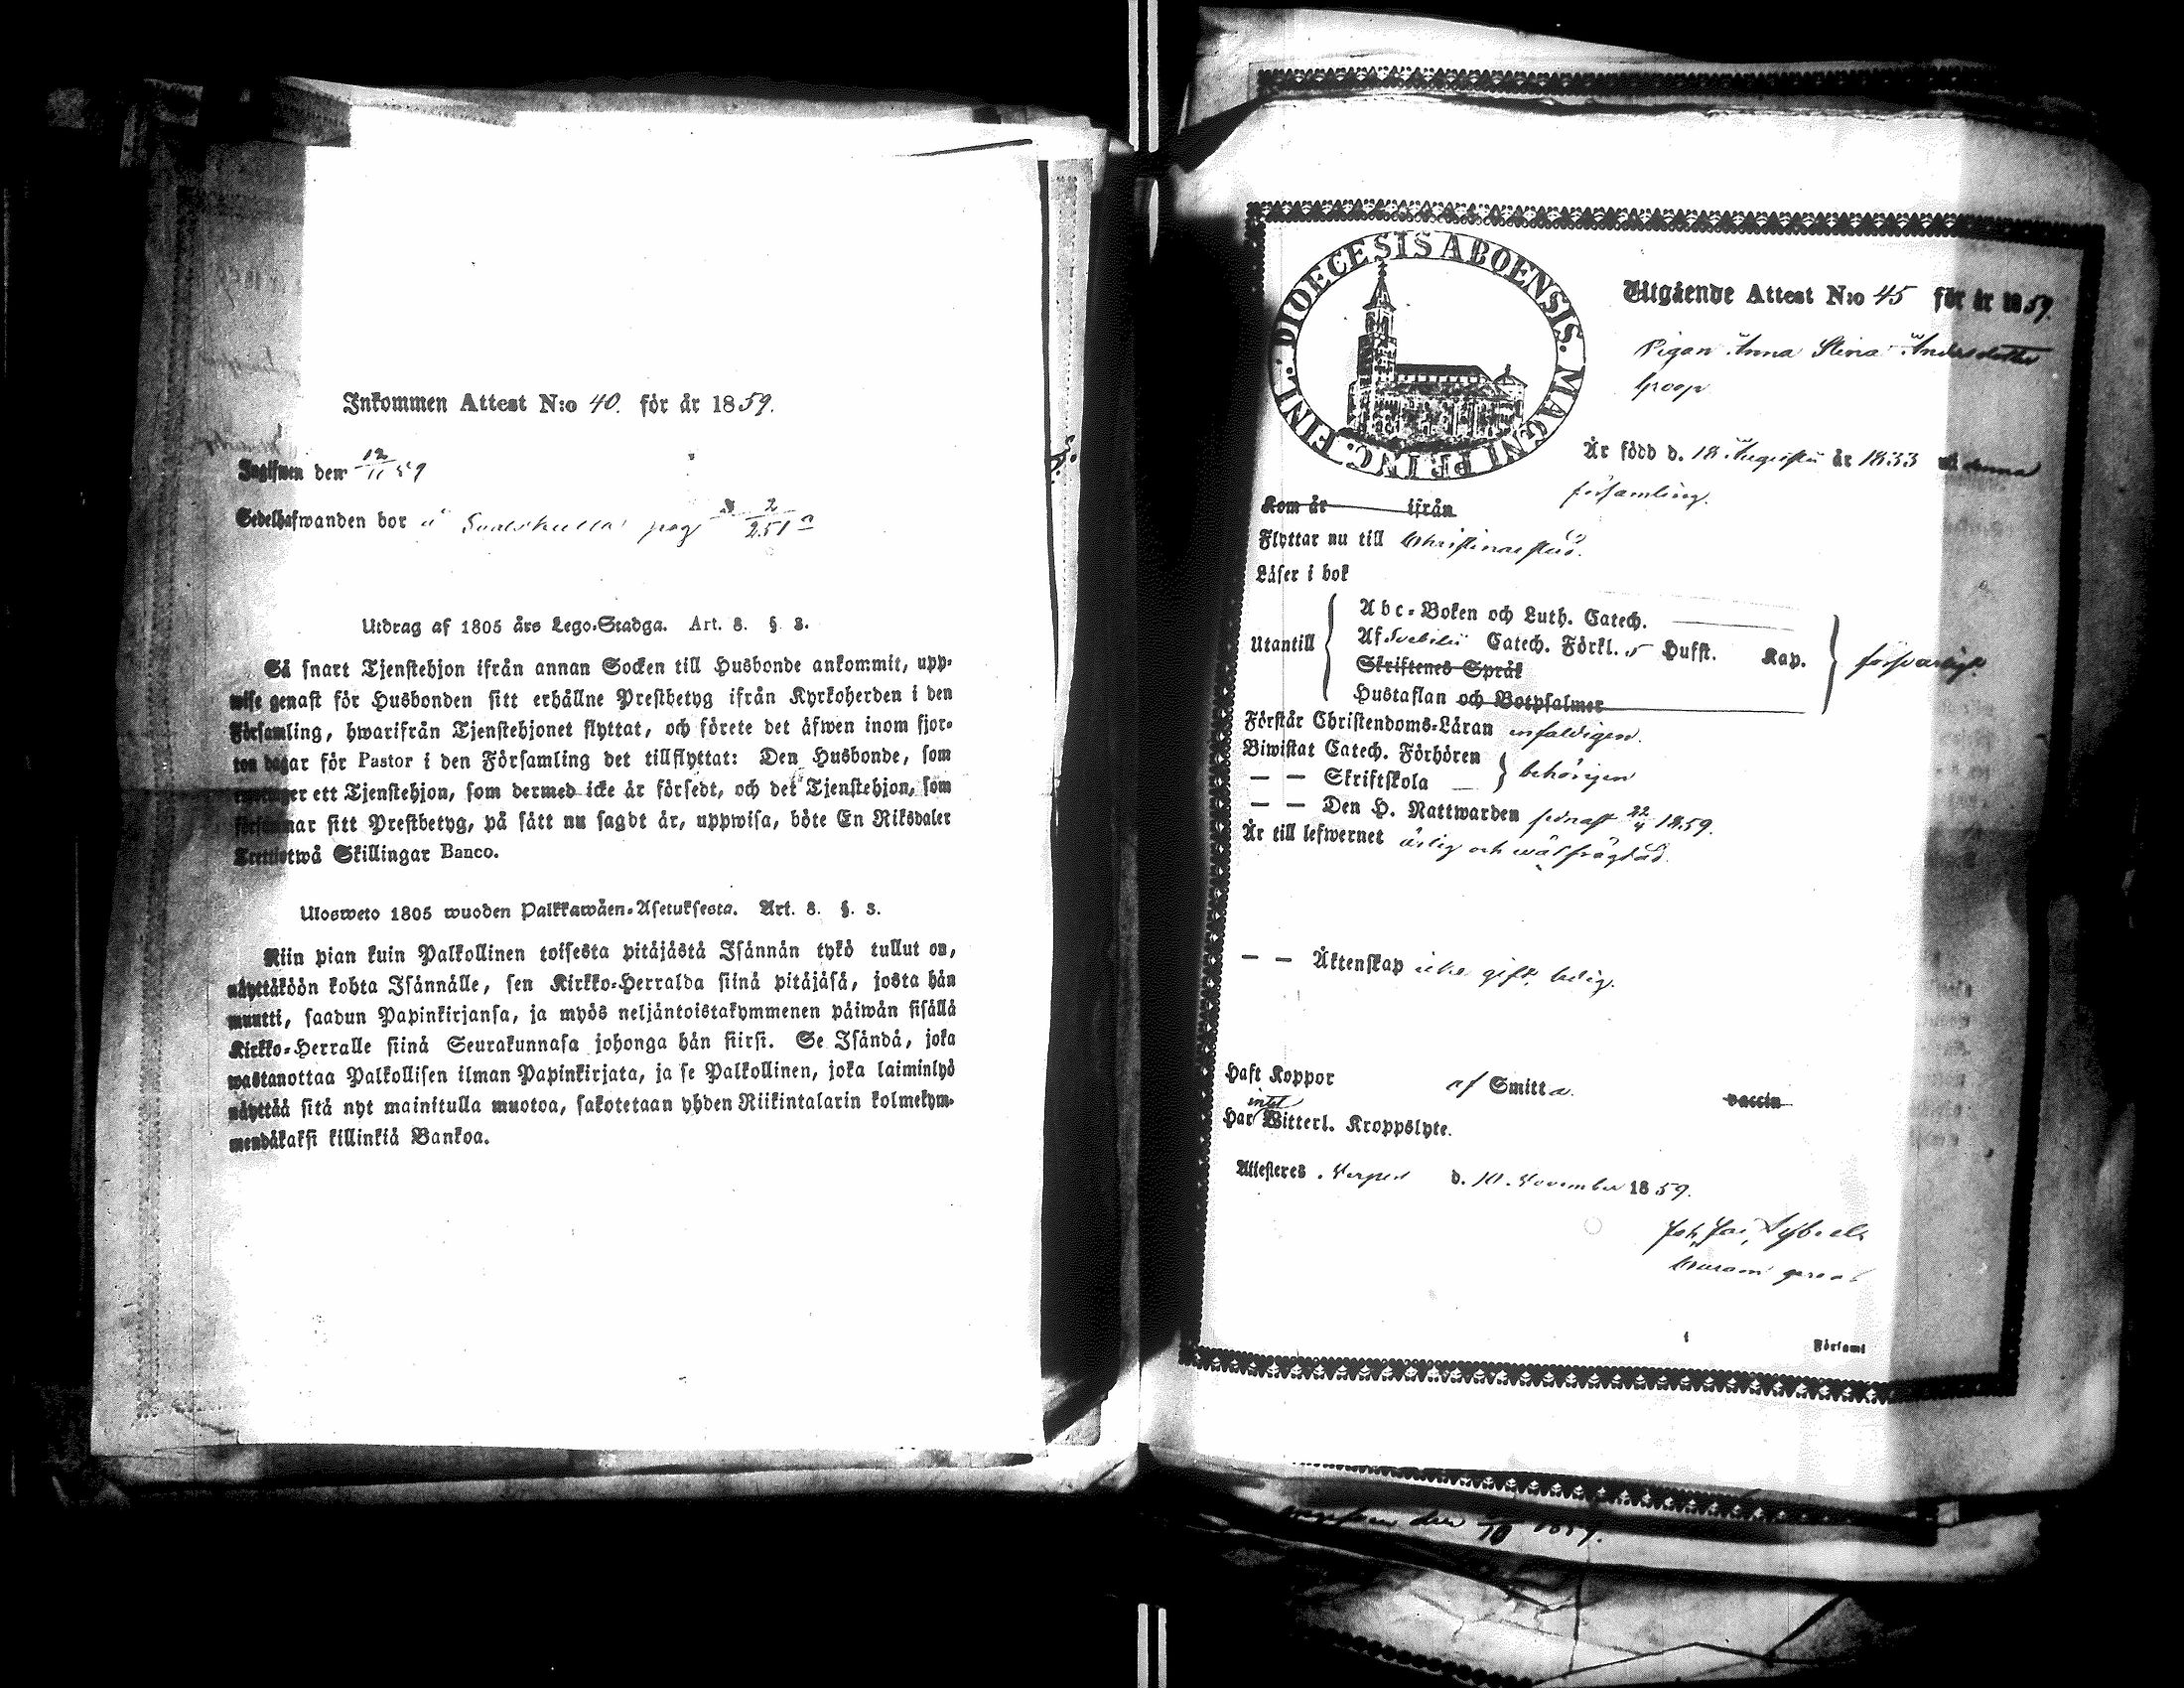 Inkommen Attest N:o 40. för år 1859.
Ingifwen den 12/11 59
Sedelhafwanden bor å pag 2/251
Utdrag af 1805 års Lego-Stadga. Art. 8. § 3.
Så snart Tjenstehjon ifrån annan Socken till Husbonde ankommit, upp-
wise genast för Husbonden sitt erhållne Prestbetyg ifrån Kyrkoherden i den
Församling, hwarifrån Tjenstehjonet flyttat, och förete det äfwen inom fjor-
ton dagar för Pastor i den Församling det tillflyttat: Den Husbonde, som
ett Tjenstehjon, som dermed icke är försedt, och det Tjenstehjon, som
försummar sitt Prestbetyg, på sätt nu sagdt är, uppwisa, böte En Riksdaler
Trettiotwå Skillingar Banco.
Ulosweto 1805 wuoden Palkkawäen-Asetuksesta. Art. 8. §. 3.
Niin pian kuin Palkollinen toisesta pitäjästä Isännän tykö tullut on,
näyttäköön kohta Isännälle, sen Kirkko-Herralda siinä pitäjäsä, josta hän
muutti, saadun Papinkirjansa, ja myös neljäntoistakymmenen päiwän sisällä
Kirkko-Herralle siinä Seurakunnasa johonga hän siirsi. Se Isändä, joka
wastanottaa Palkollisen ilman Papinkirjata, ja se Palkollinen, joka laiminlyö
näyttää sitä nyt mainitulla muotoa, sakotetaan yhden Riikintalarin kolmekym-
mendäkaksi killinkiä Bankoa.
DIOECESIS ABOENSIS. MAGNI PRINC. FINL.
Utgående Attest N:o 45 för år 1859.
Pigan Anna Stina Andersdotter
Groop
Är född d. 18 Augusti år 1833 uti denna
församling.
Kom år ifrån
Flyttar nu till Christinaestad.
Läser i bok
Utantill
Abc-Boken och Luth. Catech.
Af Svebilii Catech. Förkl. 5 Hufst. Kap.
Skriftenes Språk
Hustaflan och Botpsalmer
försvarligt
Förstår Christendoms-Läran enfaldigen.
Biwistat Catech. Förhören
— — Skriftskola
behörigen
— — Den H. Nattwarden sednast 22/4 1859.
Är till lefwernet ärlig och wälfrägdad.
— — Äktenskap icke gift, ledig.
Haft Koppor af Smitta. vaccin
Har intet Witterl. Kroppslyte.
Attesteras Nerpes d. 10 November 1859.
Joh. Jac.
i Församl
den /10 1859.